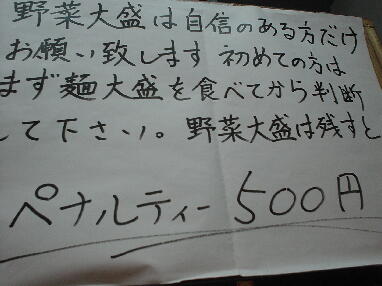 野菜大盛は自信のある方だけ
お願い致します 初めての方は
まず麺大盛を食べてから判断
して下さい。野菜大盛は残すと
ペナルティー 500円